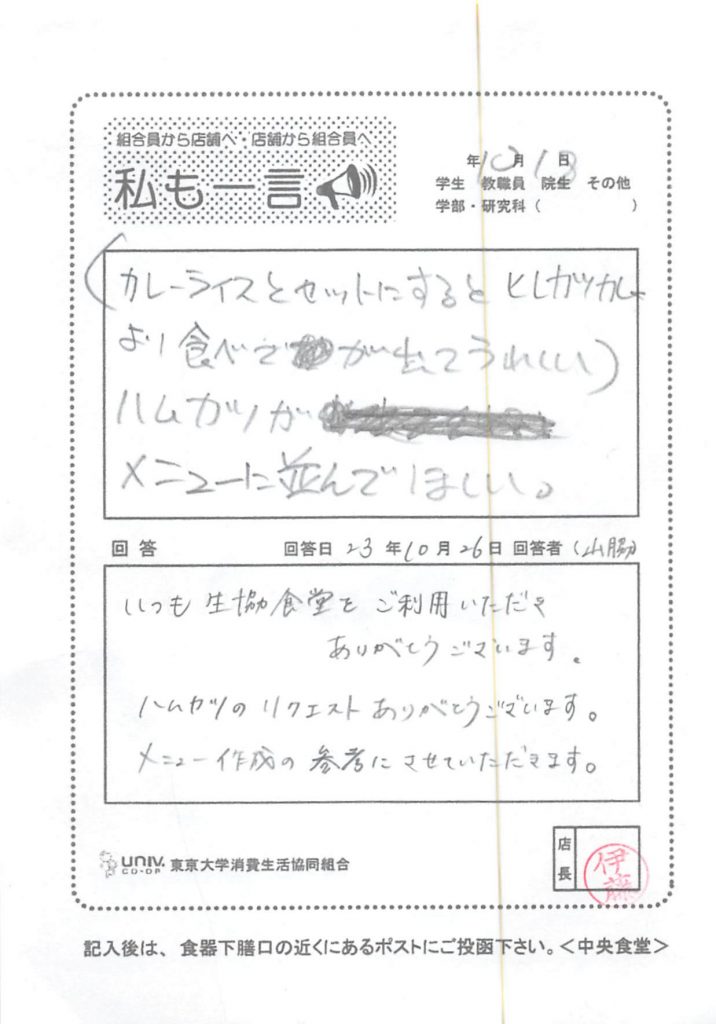 組合員から店舗へ・店舗から組合員へ
私も一言
年10月18日
学生 教職員 院生 その他
学部・研究科( )
(カレーライスとセットにするとヒレカツカレー
より食べでが出てうれしい)
ハムカツが
メニューに並んでほしい。
回答 回答日 23年10月26日 回答者(山脇)
いつも生協食堂をご利用いただき
ありがとうございます。
ハムカツのリクエストありがとうございます。
メニュー作成の参考にさせていただきます。
UNIV. CO-OP 東京大学消費生活協同組合
店長 伊藤
記入後は、食器下膳口の近くにあるポストにご投函下さい。<中央食堂>